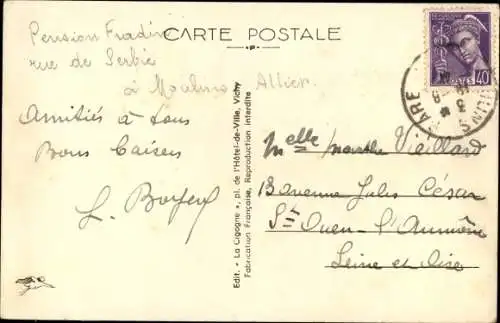 CARTE POSTALE
Pension
rue de Serbie
à Moulins Allier
Amitiés à tous
Bons baisers
L. Boyer
Edit. "La Cigogne", pl. de l'Hôtel-de-Ville, Vichy
Fabrication Française, Reproduction interdite
40
GARE
Melle Marthe Vieillard
13 avenue Jules César
St Ouen - l'Aumône
Seine et Oise